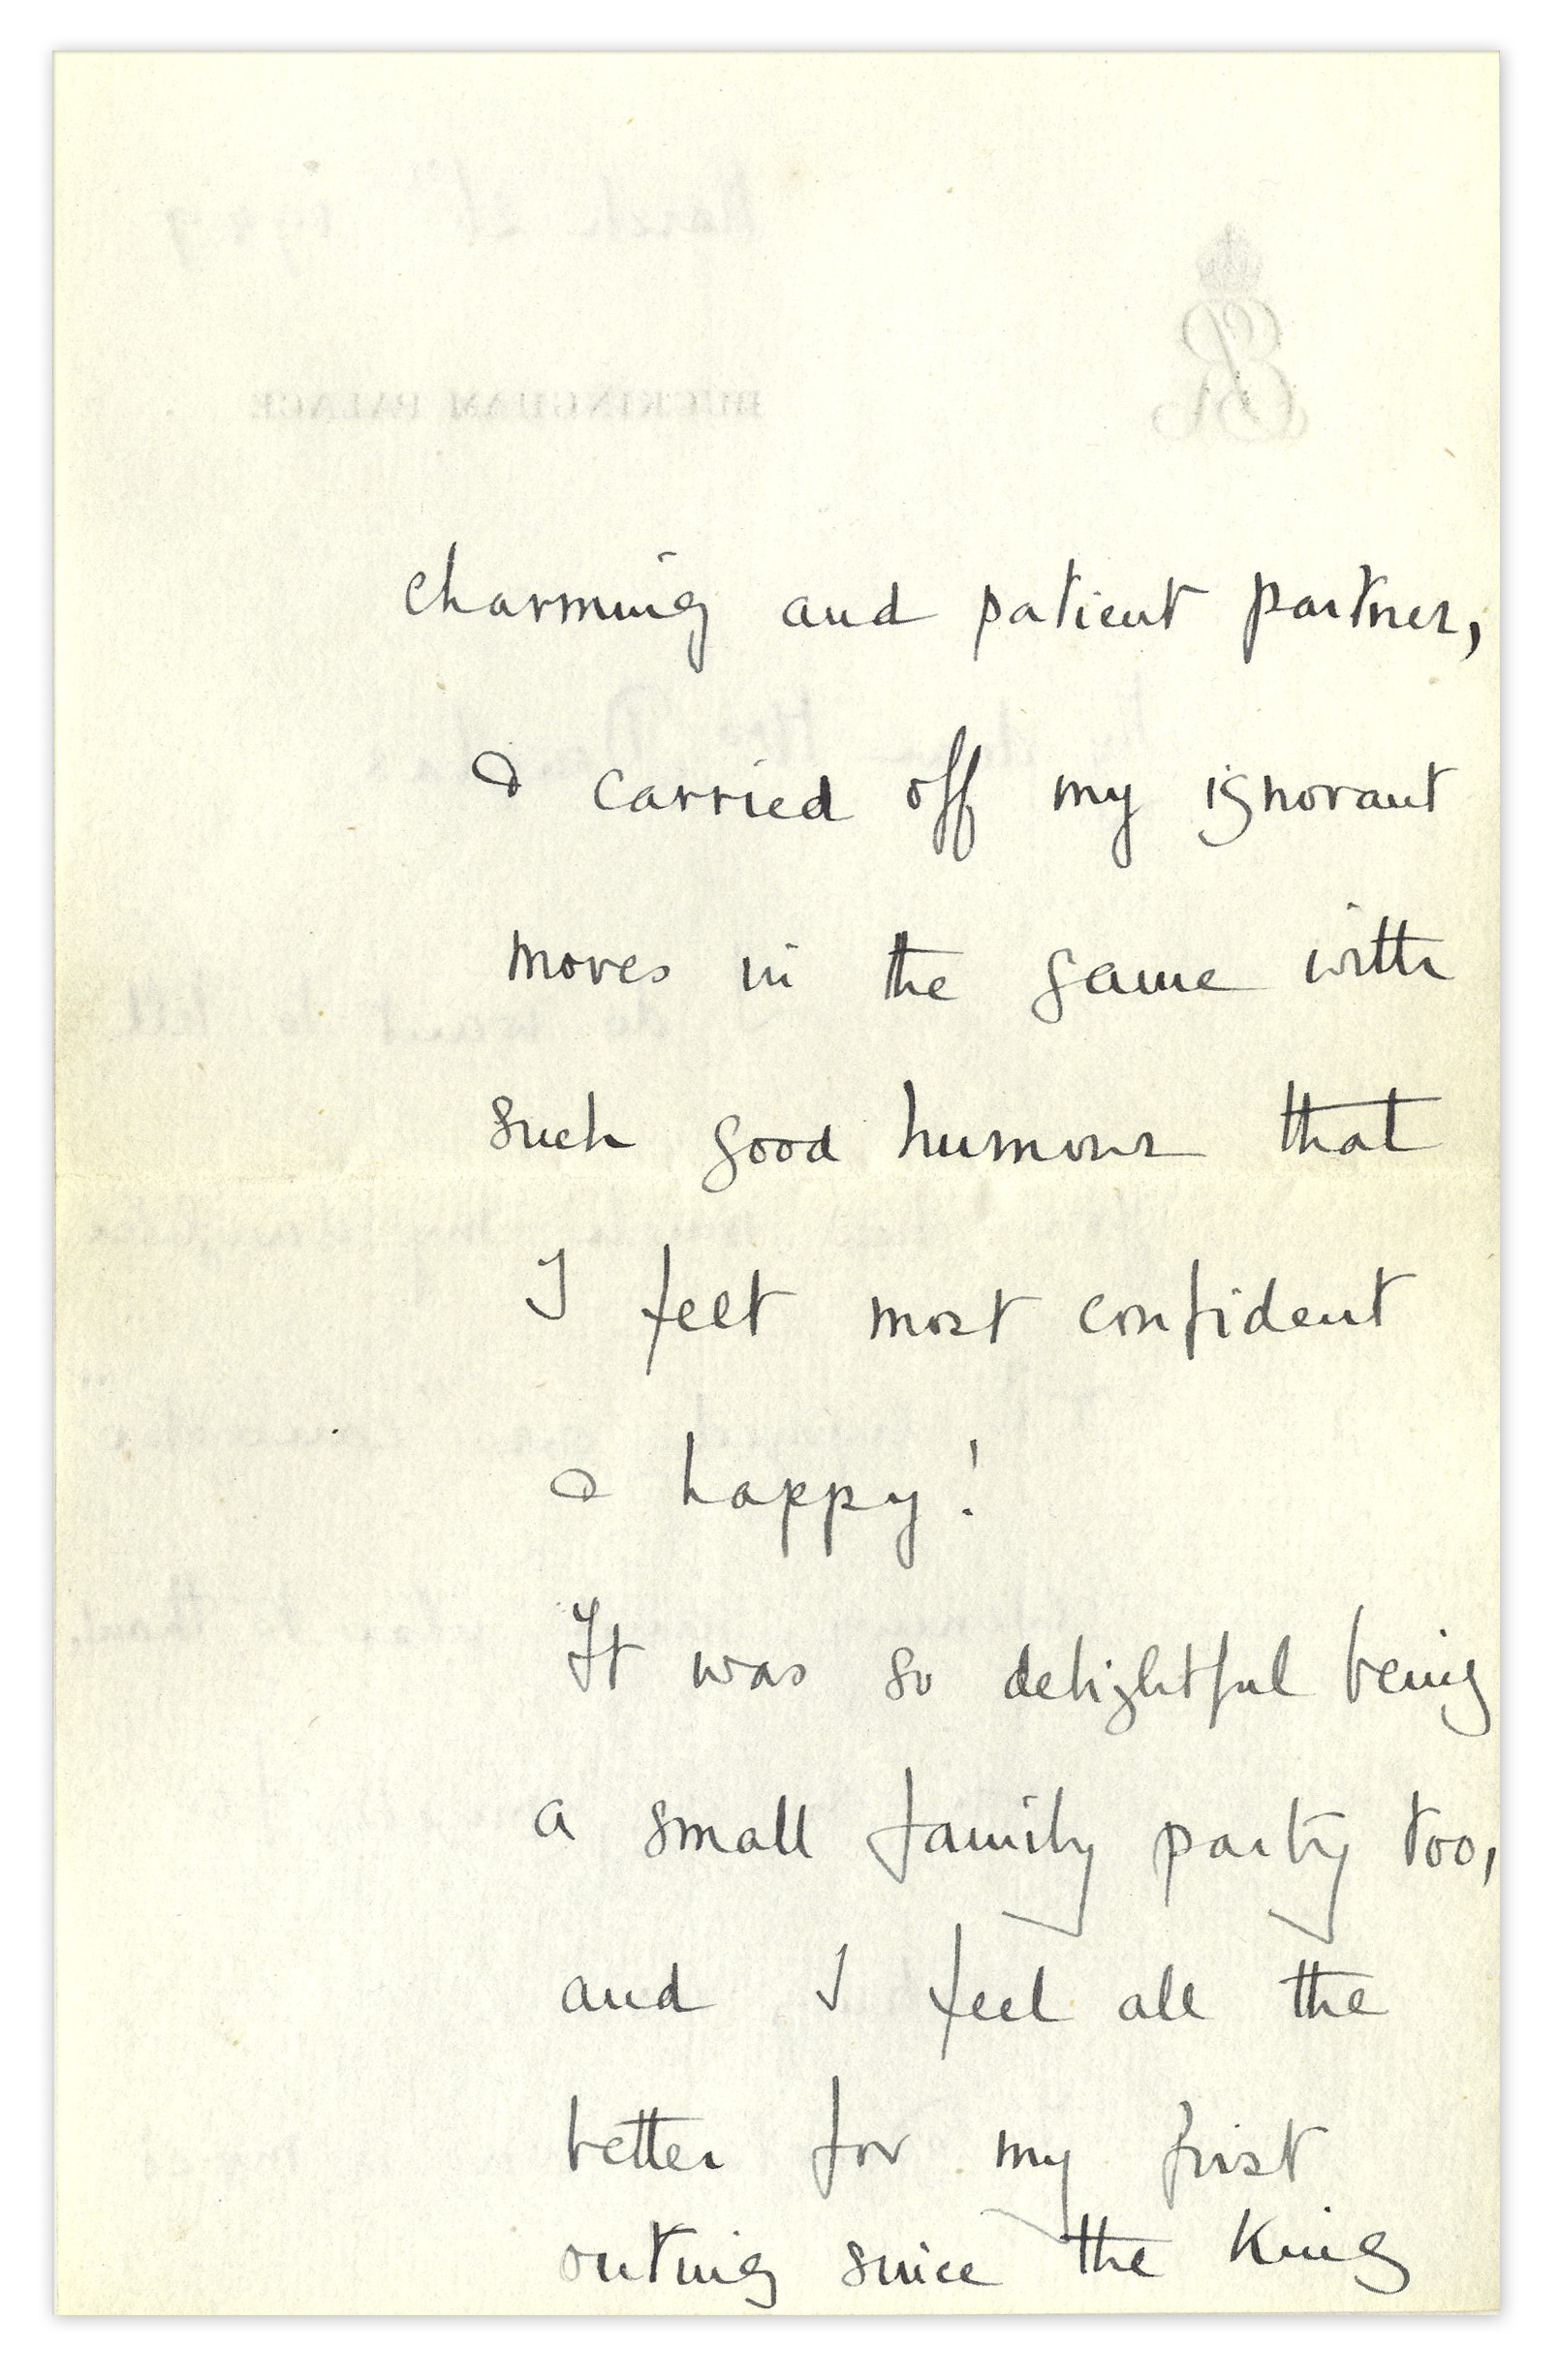 charming and patient partner,
& carried off my ignorant
moves in the game with
such good humour that
I felt most confident
& happy!
It was so delightful being
a small family party too,
and I feel all the
better for my first
outing since the King
BUCKINGHAM PALACE